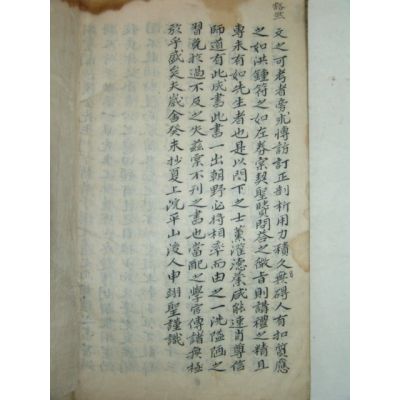 豁然
文之可考者旁求博訪訂正剖析用力積久無碍人有扣質應
之如洪鍾符之如左券宗契聖賢問答之微旨則講禮之精且
專未有如先生者也是以門下之士薰灌德業咸能速肖尊信
師道有此成書此書一出朝野必將相率而由之一洗陋之
習於過不及之失玆不刊之書也當配之學官傳諸無極
於乎盛矣歲舍癸未抄夏上院平山後人申翊聖謹識